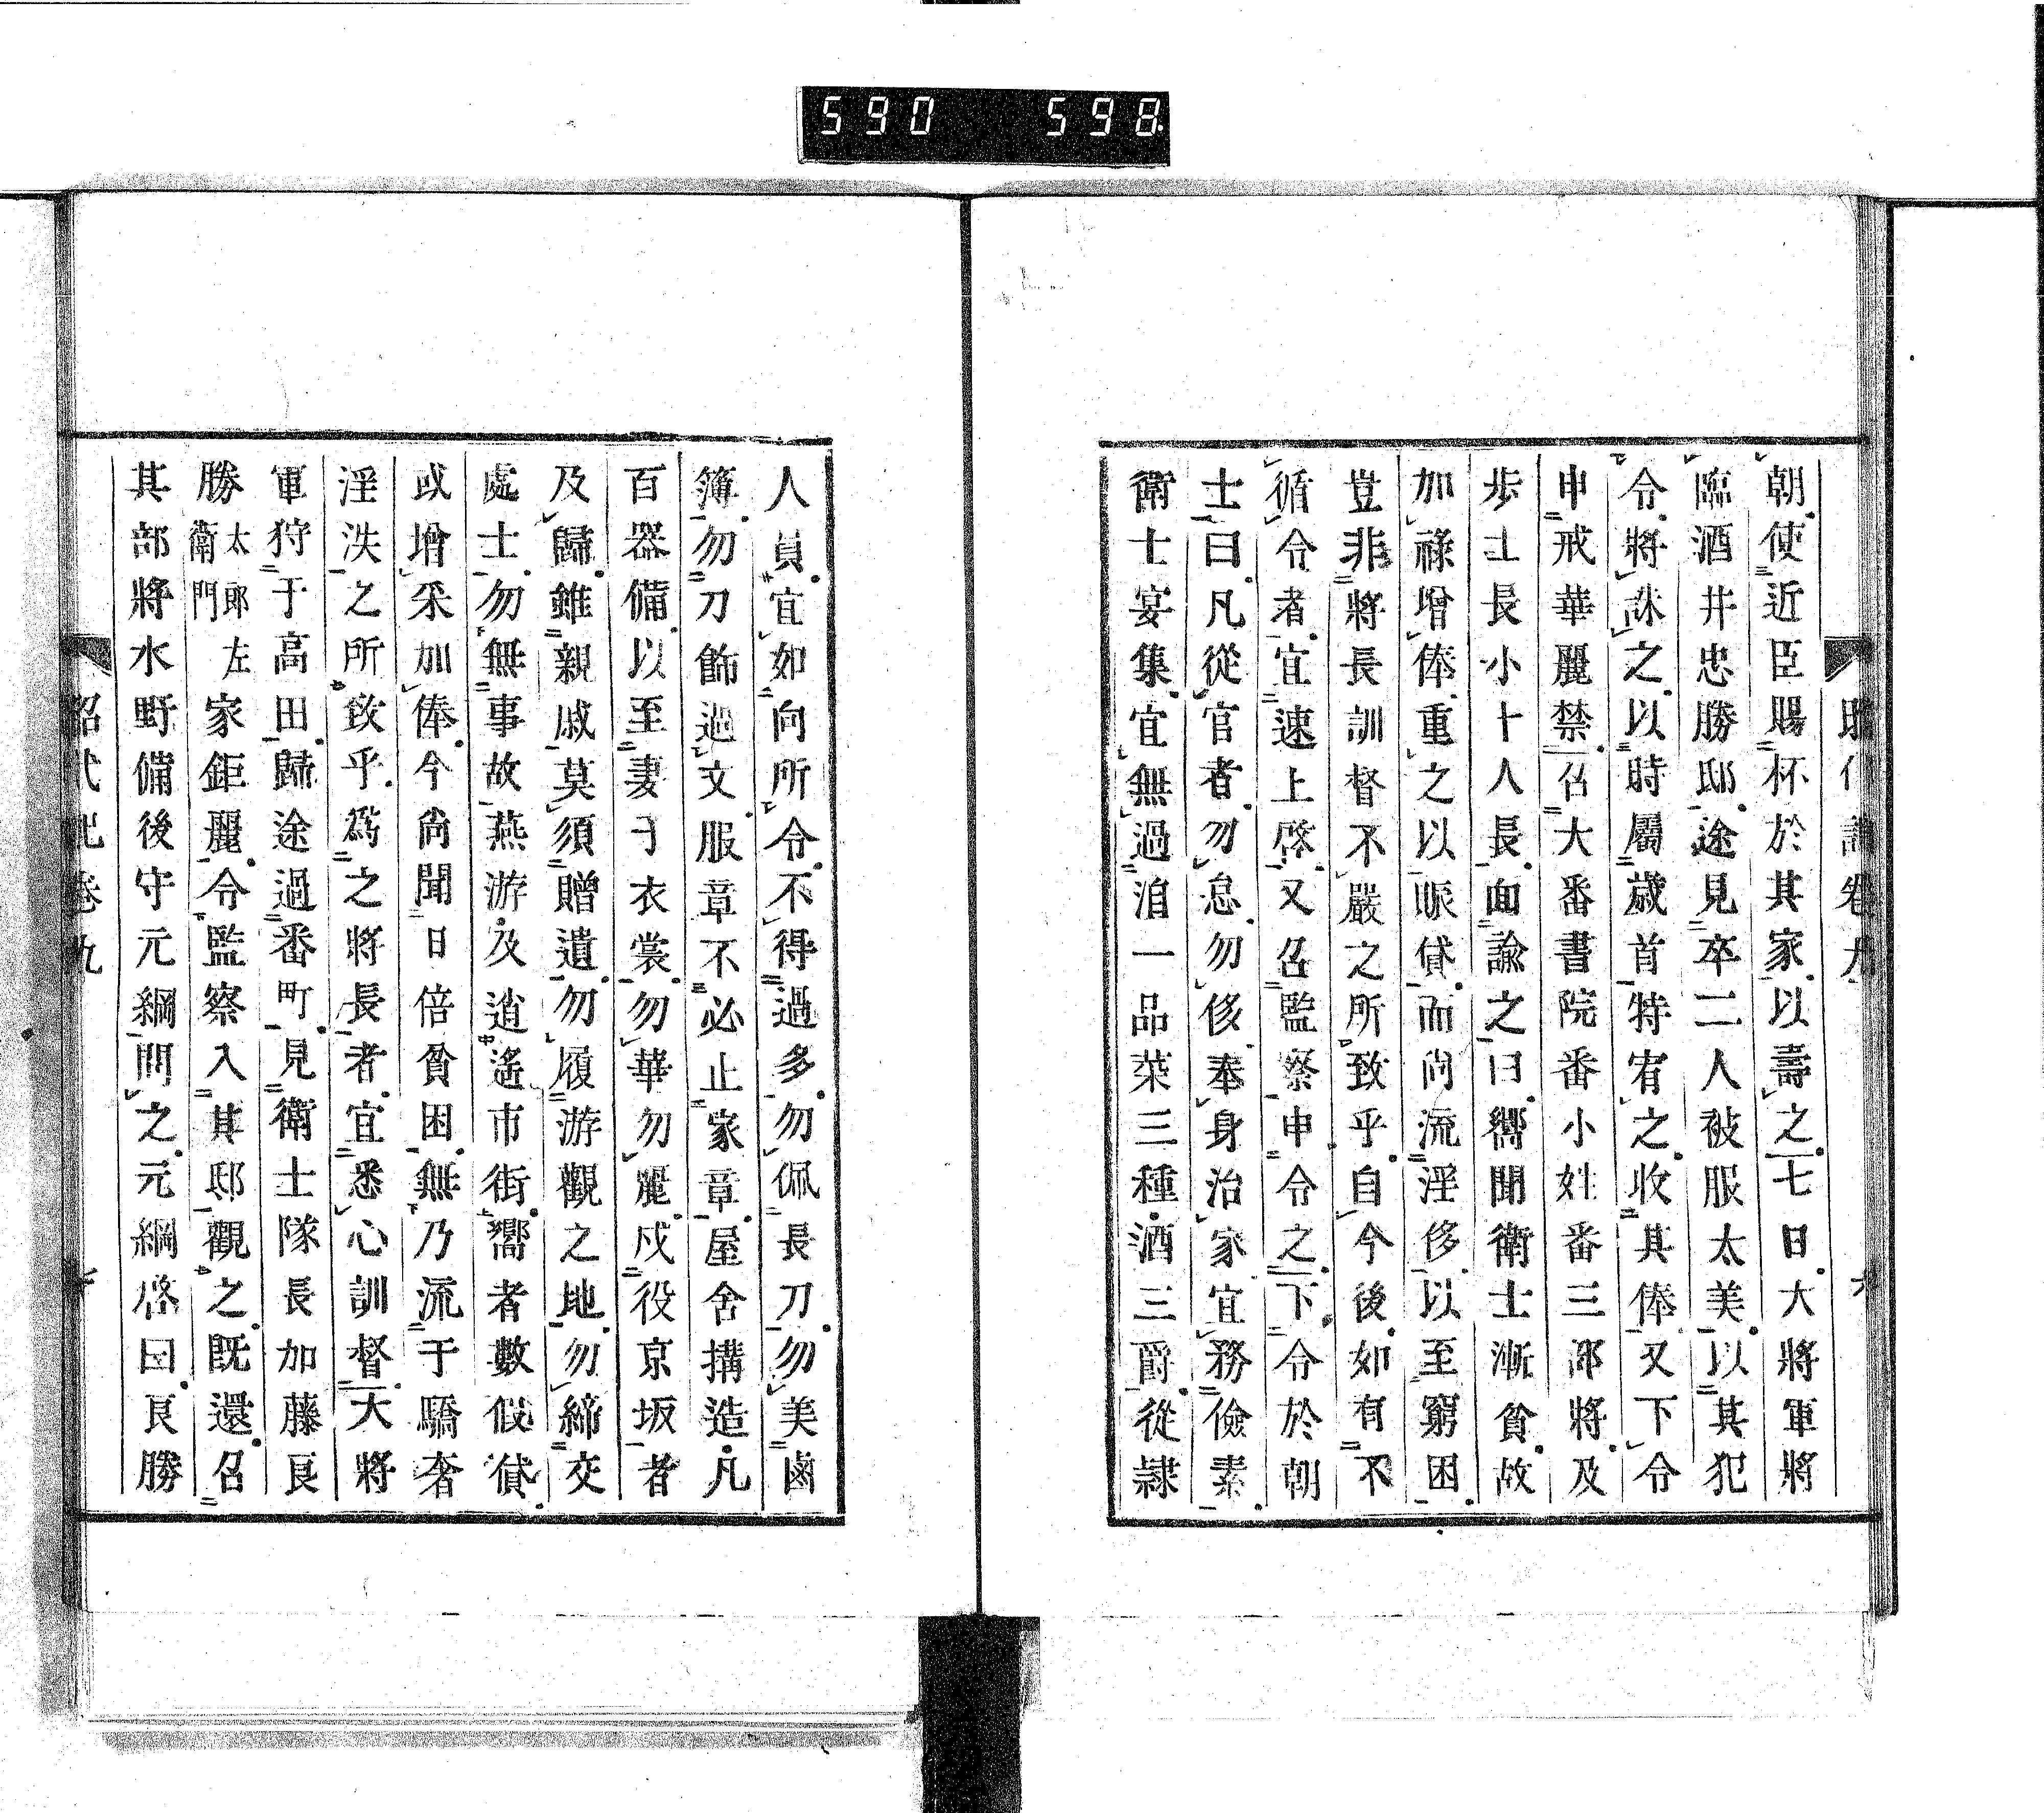 590 598
朝。使近臣賜杯於其家。以壽之。七日大將軍將
臨酒井忠勝邸。途見卒二人被服太美。以其犯
令。將誅之。以時屬歲首特宥之。收其俸。又下令
申戒華麗禁。召大番書院番小姓番三部將。及
步士長小十人長。面諭之曰。嚮聞衛士漸貧。故
加祿增俸。重之以賑貸。而尚流淫侈。以至窮困。
豈非將長訓督不嚴之所致乎。自今後。如有不
循令者。宜速上啓。又召監察申令之。下令於朝
士曰。凡從官者。勿怠。勿侈。奉身治家。宜務儉素。
衛士宴集。宜無過湆一品菜三種。酒三爵。從隷
人員。宜如向所令。不得過多。勿佩長刀。勿美鹵
簿。勿刀飾過文。服章不必止家章。屋舍搆造。凡
百器備。以至妻子衣裳。勿華勿麗。戍役京坂者
及歸。雖親戚莫須贈遺。勿履游觀之地。勿締交
處士。勿無事故燕游。及逍遙市街。嚮者數假貸。
或增采加俸。今尚聞日倍貧困。無乃流于驕奢
淫泆之所致乎。爲之將長者。宜悉心訓督。大將
軍狩于高田。歸途過番町。見衛士隊長加藤良
勝太郎左衛門家鉅麗。令監察入其邸觀之。既還。召
其部將水野備後守元綱問之。元綱啓曰。良勝
昭代記卷九